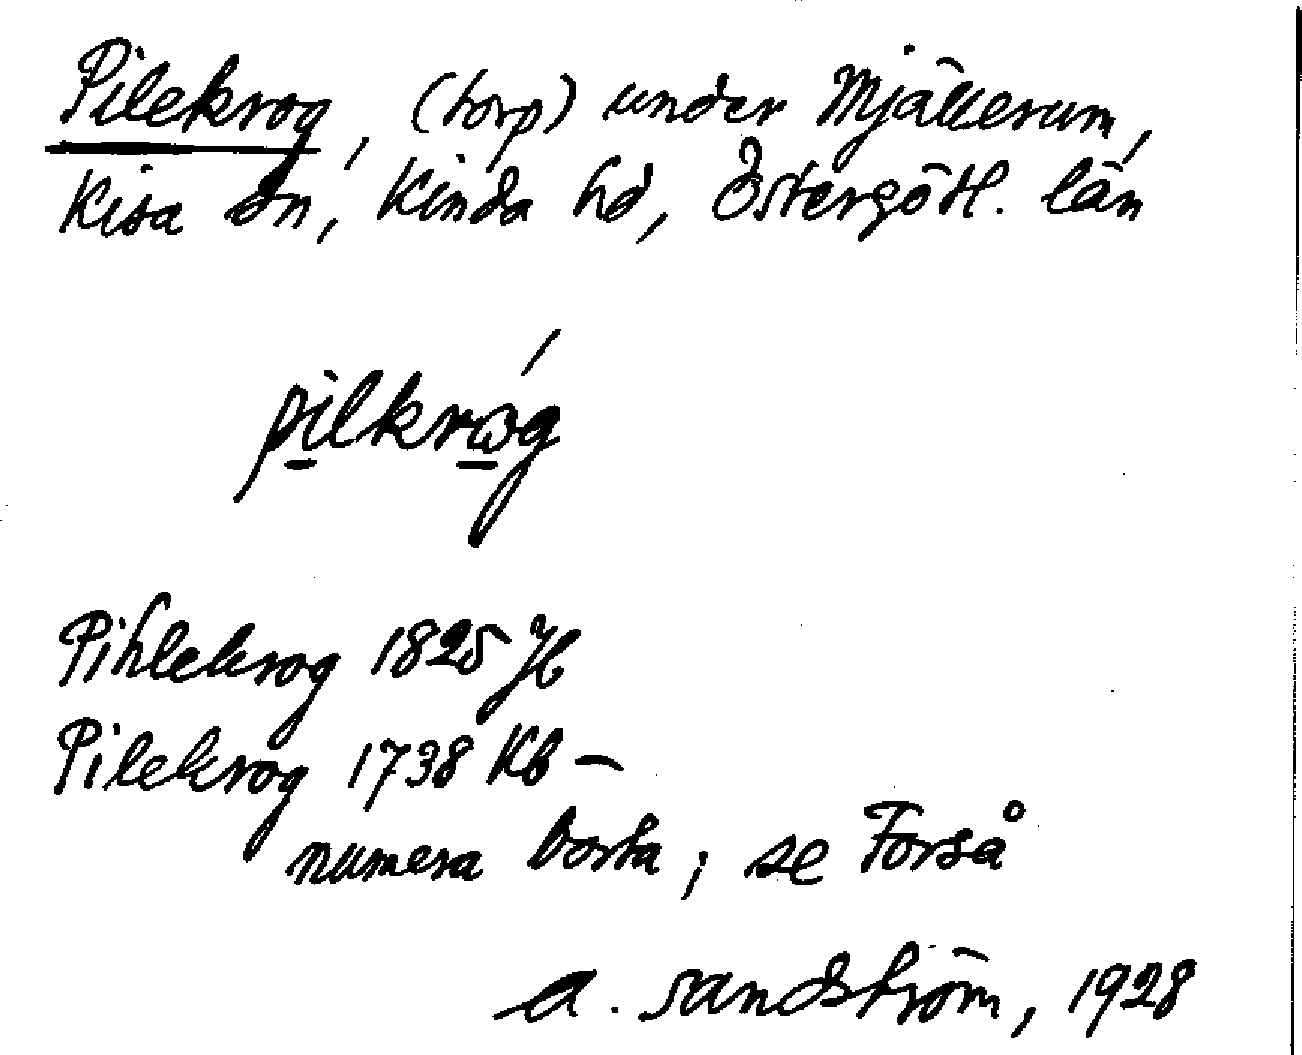 Pilekrog, (torp) under Mjällerum,
Kisa sn, Kinda hd, Östergötl. län
pilkrωg
Pihlekrog 1825 Jb
Pilekrog 1738 Kb –
numera borta; se Forså
A. Sandström, 1928